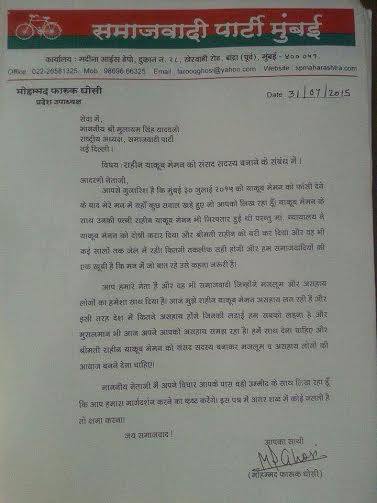 समाजवादी पार्टी मुंबई
कार्यालय : मदीना आईस डेपो, दुकान नं. २८, खेरवाडी रोड, बांद्रा (पूर्व), मुंबई - ४०० ०५१.
Office : 022-26581325 Mob : 98696 66325 Email : farooqghosi@yahoo.com Website : spmaharashtra.com
मोहम्मद फारुक घोसी
प्रदेश उपाध्यक्ष
Date 31/07/2015
सेवा में,
माननीय श्री मुलायम सिंह यादवजी
राष्ट्रीय अध्यक्ष, समाजवादी पार्टी
नई दिल्ली।
विषय : राहीन याकूब मेमन को संसद सदस्य बनाने के संबंध में।
आदरणी नेताजी,
आपसे गुजारिश है कि मुंबई ३० जुलाई २०१५ को याकूब मेमन को फांसी देने
के बाद मेरे मन में यहाँ कुछ सवाल खड़े हुए जो आपको लिख रहा हूँ। याकूब मेमन के
साथ उनकी पत्नी राहीन याकूब मेमन भी गिरफ्तार हुई थी परन्तु मा. न्यायालय ने
याकूब मेमन को दोषी करार दिया और श्रीमती राहीन को बरी कर दिया और वह भी
कई सालों तक जेल में रहीं। कितनी तकलीफ सही होगी और हम समाजवादियों की
एक खूबी है कि मन में जो बात रहे उसे कहना जरूरी है।
आप हमारे नेता है और वह भी समाजवादी जिन्होंने मजलूम और असहाय
लोगों का हमेशा साथ दिया है। आज मुझे राहीन याकूब मेमन असहाय लग रही है और
इसी तरह देश में कितने असहाय होंगे जिनकी लड़ाई हम सबको लड़ना है और
मुसलमान भी आज अपने आपको असहाय समझ रहा है। हमें साथ देना चाहिए और
श्रीमती राहीन याकूब मेमन को संसद सदस्य बनाकर मजलूम व असहाय लोगों की
आवाज बनने देना चाहिए।
माननीय नेताजी मैं अपने विचार आपके पास बड़ी उम्मीद के साथ लिख रहा हूँ
कि आप हमारा मार्गदर्शन करने का कष्ट करेंगे। इस पत्र में अगर शब्द में कोई गलती है
तो क्षमा करना।
जय समाजवाद !
आपका साथी
(मोहम्मद फारुक घोसी)